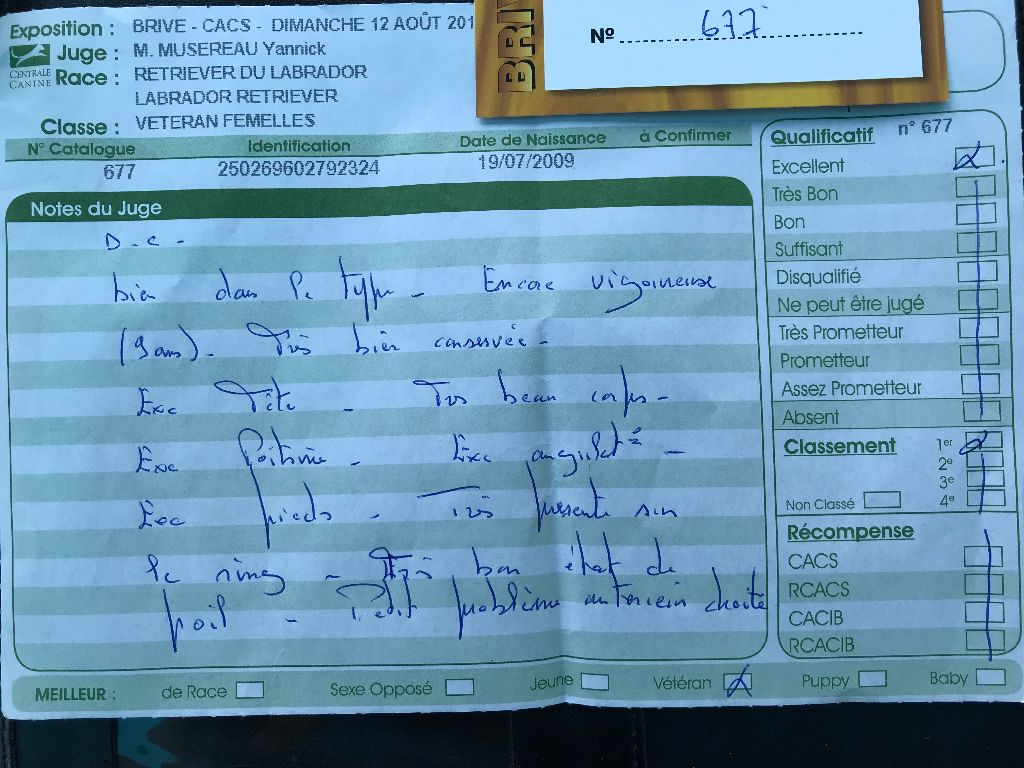 Exposition : BRIVE - CACS - DIMANCHE 12 AOÛT 201
Juge : M. MUSEREAU Yannick
CENTRALE CANINE
Race : RETRIEVER DU LABRADOR
LABRADOR RETRIEVER
Classe : VETERAN FEMELLES
BRI
Nº 677
N° Catalogue Identification Date de Naissance à Confirmer
677 250269602792324 19/07/2009
Notes du Juge
D.C -
bien dans le type - Encore vigoureuse
(9 ans) - Très bien conservée -
Exc Tête - Très beau corps -
Exc Poitrine - Exc angulat° -
Exc pieds - Très présente sur
le ring - Très bon état de
poil - Petit problème antérieur droite
Qualificatif n° 677
Excellent
Très Bon
Bon
Suffisant
Disqualifié
Ne peut être jugé
Très Prometteur
Prometteur
Assez Prometteur
Absent
Classement 1er
2e
3e
Non Classé 4e
Récompense
CACS
RCACS
CACIB
RCACIB
MEILLEUR : de Race Sexe Opposé Jeune Vétéran Puppy Baby